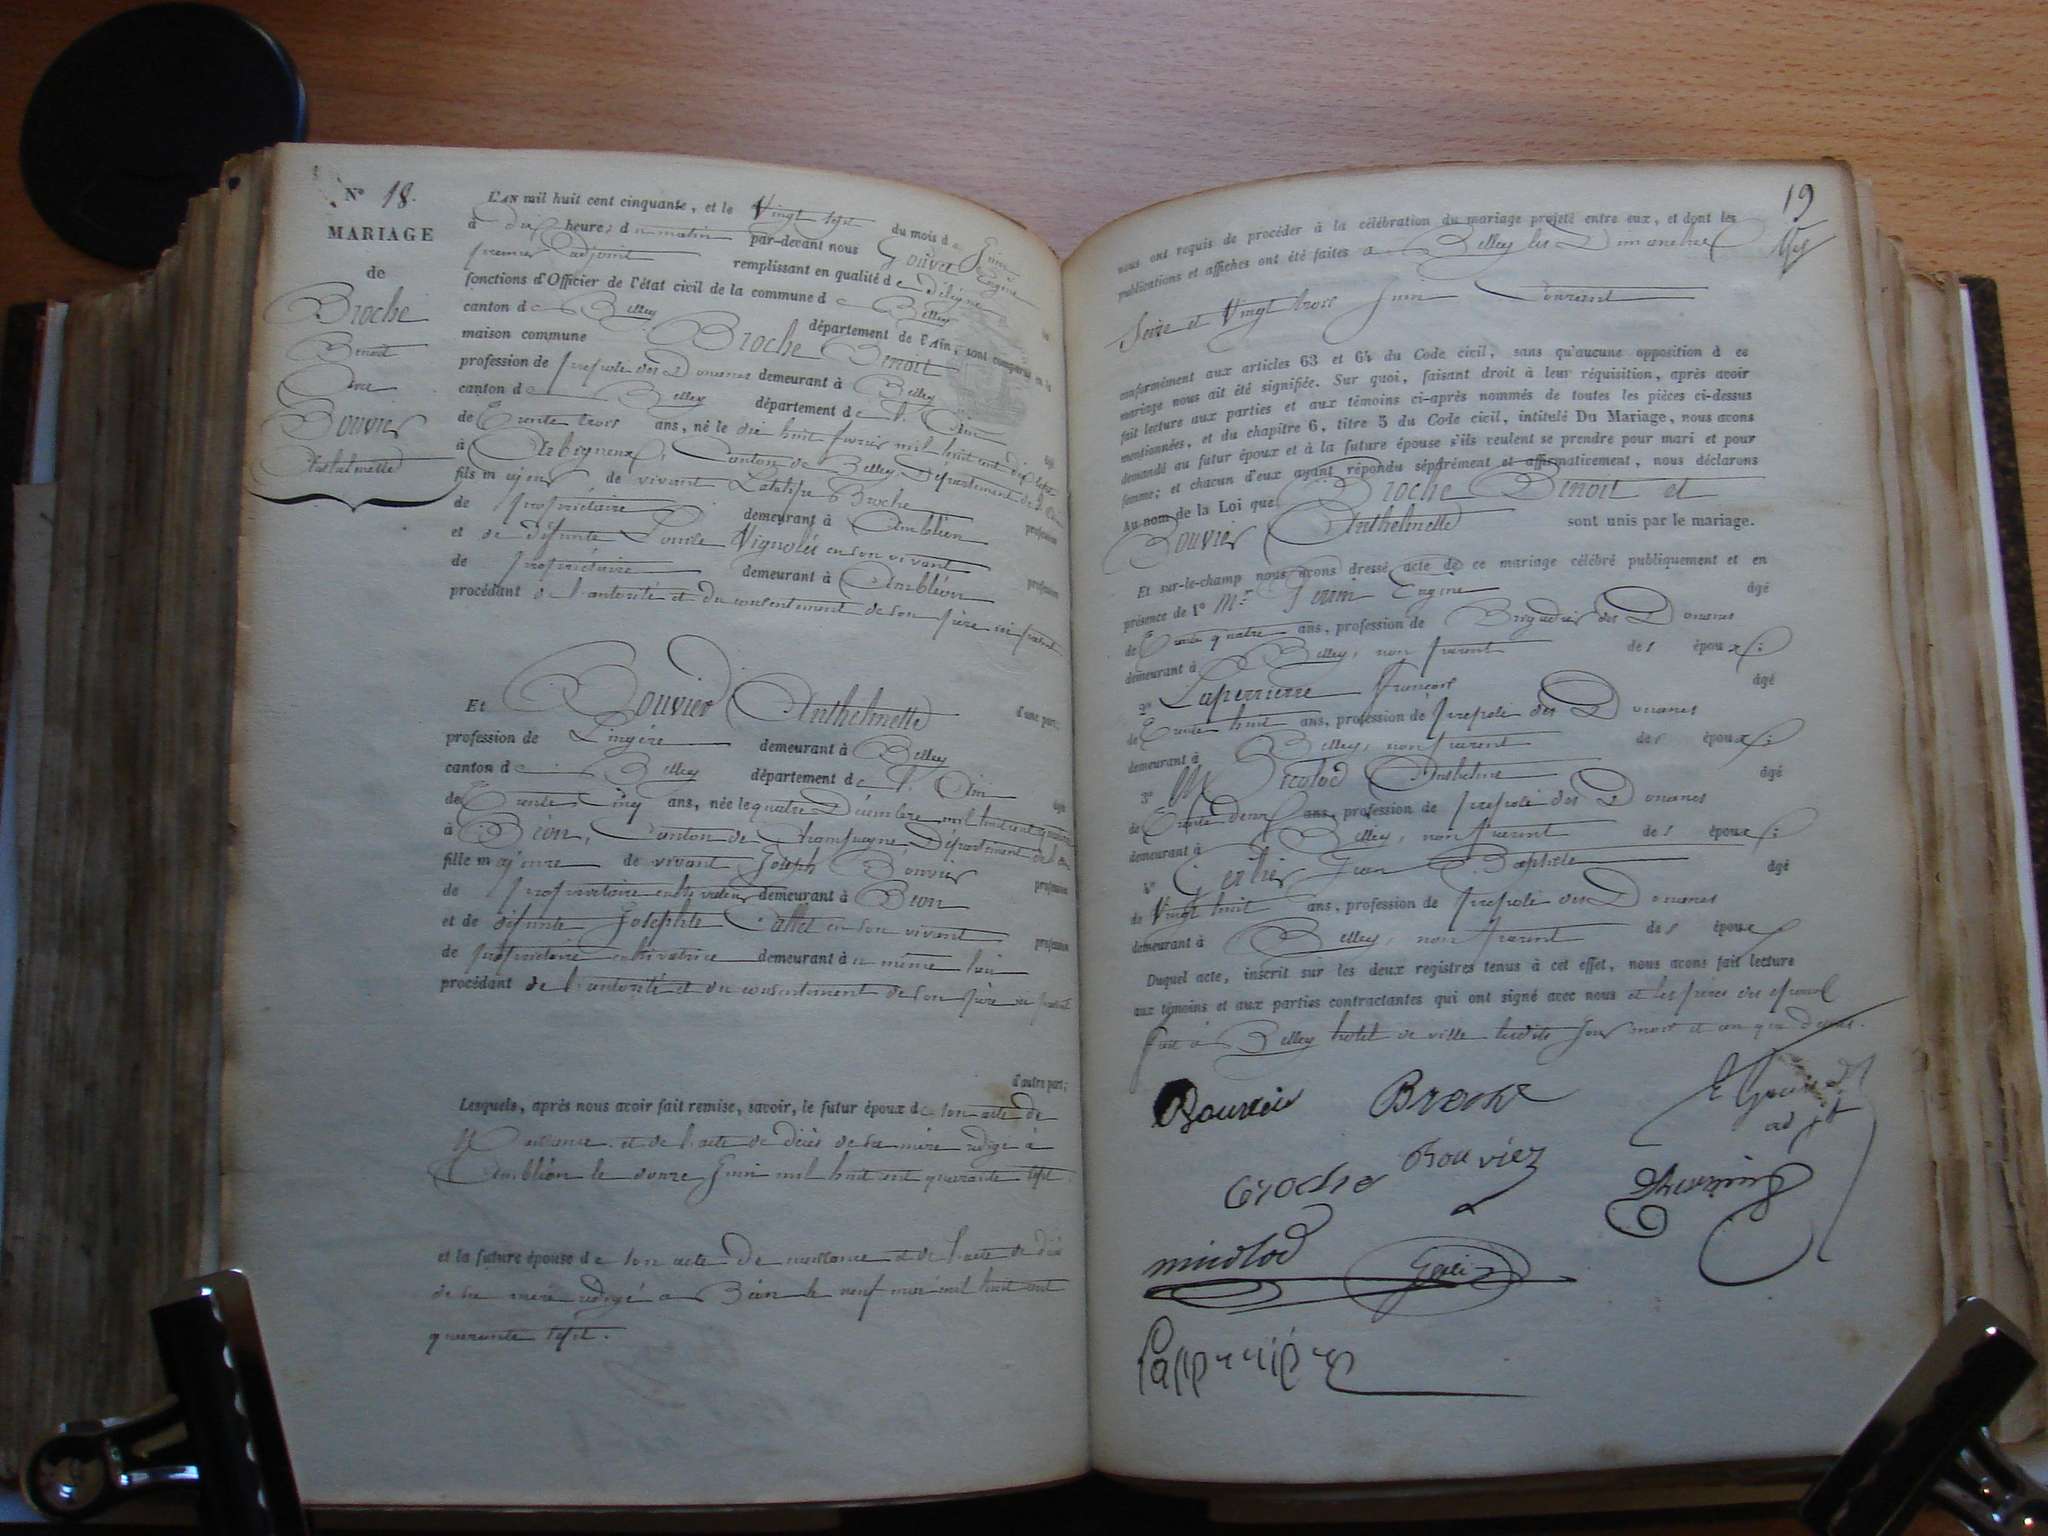 N° 18.
MARIAGE
de
Broche
Benoit
Avec
Bouvier
Anthelmette
L'AN mil huit cent cinquante, et le Vingt sept du mois de Juin
à dix heures du matin par-devant nous
premier adjoint remplissant en qualité de délégué
fonctions d'Officier de l'état civil de la commune de Belley
canton de Belley département de l'Ain, sont comparus en la
maison commune Broche Benoit
profession de préposé des Douanes demeurant à Belley
canton de Belley département de l'Ain âgé
de trente trois ans, né le dix huit février mil huit cent dix sept
à Arbignieux, Canton de Belley, Département de l'Ain
fils majeur de vivant Broche profession
de propriétaire demeurant à Ambléon
et de défunte Vignolet en son vivant profession
de propriétaire demeurant à Ambléon
procédant de l'autorité et du consentement de son père ici présent
d'une part;
Et Bouvier Anthelmette
profession de Lingère demeurant à Belley
canton de Belley département de l'Ain âgée
de trente cinq ans, née le quatre Décembre mil huit cent quatorze
à Béon, Canton de Champagne, Département de l'Ain
fille majeure de vivant Joseph Bouvier profession
de propriétaire cultivateur demeurant à Béon
et de défunte Josephte Callet en son vivant profession
de propriétaire cultivatrice demeurant au même lieu
procédant de l'autorité et du consentement de son père ici présent
d'autre part;
Lesquels, après nous avoir fait remise, savoir, le futur époux de son acte de
Naissance et de l'acte de décès de sa mère rédigé à
Ambléon le douze Juin mil huit cent quarante sept.
et la future épouse de son acte de naissance et de l'acte de décès
de sa mère rédigé à Béon le neuf mai mil huit cent
quarante sept.
19
nous ont requis de procéder à la célébration du mariage projeté entre eux, et dont les
publications et affiches ont été faites à Belley les Dimanches
Seize et Vingt trois Juin Courant
conformément aux articles 63 et 64 du Code civil, sans qu'aucune opposition à ce
mariage nous ait été signifiée. Sur quoi, faisant droit à leur réquisition, après avoir
fait lecture aux parties et aux témoins ci-après nommés de toutes les pièces ci-dessus
mentionnées, et du chapitre 6, titre 5 du Code civil, intitulé Du Mariage, nous avons
demandé au futur époux et à la future épouse s'ils veulent se prendre pour mari et pour
femme; et chacun d'eux ayant répondu séparément et affirmativement, nous déclarons
Au nom de la Loi que Broche Benoit et
Bouvier Anthelmette sont unis par le mariage.
Et sur-le-champ nous avons dressé acte de ce mariage célébré publiquement et en
présence de 1° Mr Eugène âgé
de trente quatre ans, profession de Brigadier des Douanes
demeurant à Belley, non parent des époux;
2° Laperrierre François âgé
de trente huit ans, profession de préposé des Douanes
demeurant à Belley, non parent des époux;
3° Anthelme âgé
de trente deux ans, profession de préposé des Douanes
demeurant à Belley, non parent des époux;
4° Jean Baptiste âgé
de Vingt huit ans, profession de préposé des Douanes
demeurant à Belley, non parent des époux
Duquel acte, inscrit sur les deux registres tenus à cet effet, nous avons fait lecture
aux témoins et aux parties contractantes qui ont signé avec nous et les pères des époux
fait à Belley hotel de ville lesdits jour mois et an que dessus.
Bouvier Broche
adjt
Broche Bouvier